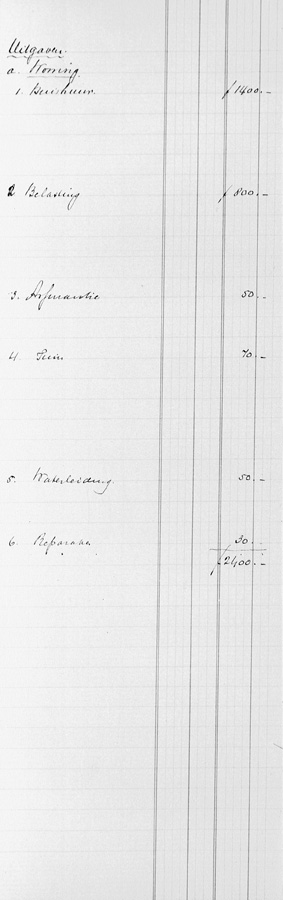 Uitgaven.
a. Woning.
1. Huishuur ƒ 1400.-
2. Belasting ƒ 800.-
3. Assurantie 50.-
4. Tuin 70.-
5. Waterleiding. 50.-
6. Reparatie 30.-
ƒ 2400.-